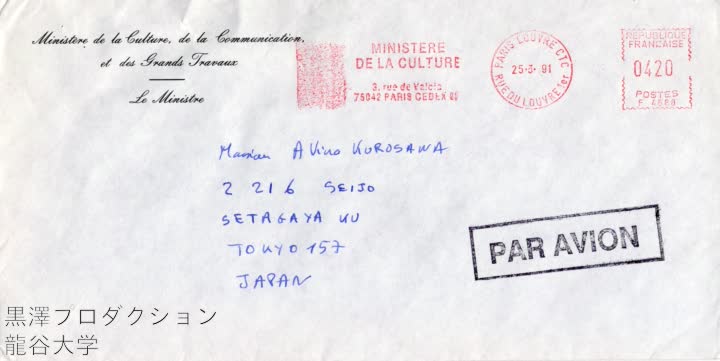 Ministère de la Culture, de la Communication,
et des Grands Travaux
Le Ministre
MINISTERE
DE LA CULTURE
3, rue de Valois
75042 PARIS CEDEX 01
PARIS LOUVRE CTC
25-3-91
RUE DU LOUVRE 1er
REPUBLIQUE
FRANCAISE
0420
POSTES
Monsieur AKira KUROSAWA
2 21 6 SEIJO
SETAGAYA KU
TOKYO 157
JAPAN
PAR AVION
黒澤プロダクション
龍谷大学